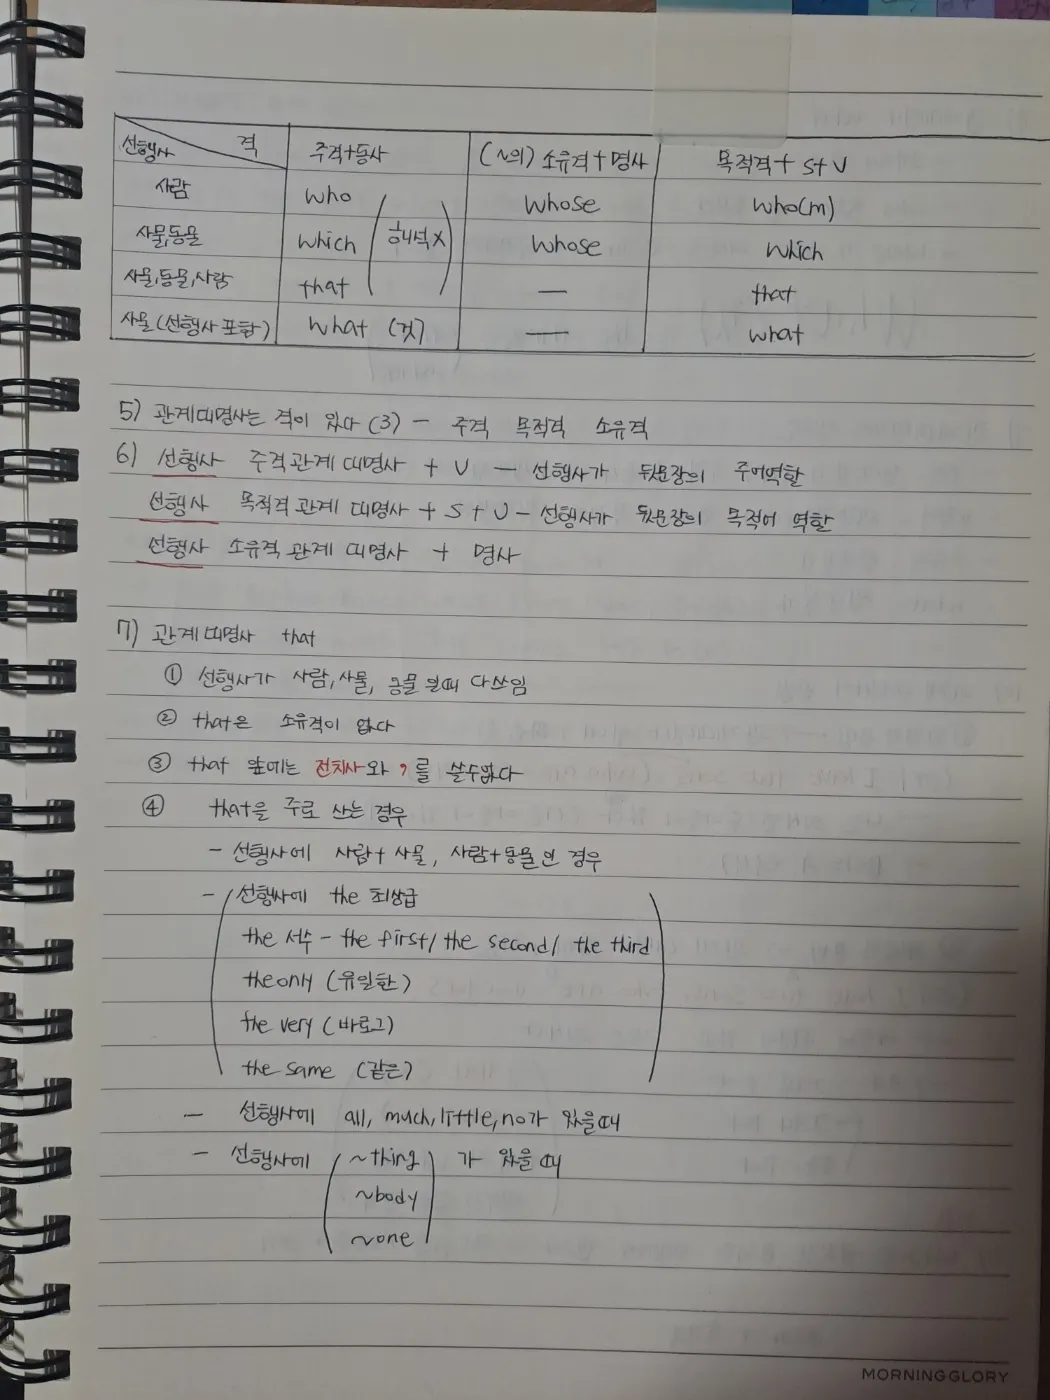 선행사 격 주격+동사 (~의) 소유격+명사 목적격+ S+V
사람 who whose who(m)
사물,동물 which (해석X) whose which
사물,동물,사람 that — that
사물(선행사 포함) what (것) — what
5) 관계대명사는 격이 있다 (3) - 주격 목적격 소유격
6) 선행사 주격관계 대명사 + V - 선행사가 뒷문장의 주어역할
선행사 목적격 관계 대명사 + S + V - 선행사가 뒷문장의 목적어 역할
선행사 소유격 관계 대명사 + 명사
7) 관계대명사 that
① 선행사가 사람,사물, 동물 일때 다쓰임
② that은 소유격이 없다
③ that 앞에는 전치사와 , 를 쓸수없다
④ that을 주로 쓰는 경우
- 선행사에 사람+ 사물, 사람+동물인 경우
- 선행사에 the 최상급
the 서수 - the first/ the second/ the third
the only (유일한)
the very (바로그)
the same (같은)
- 선행사에 all, much, little, no가 있을때
- 선행사에 (~thing) 가 있을때
~body
~one
MORNING GLORY